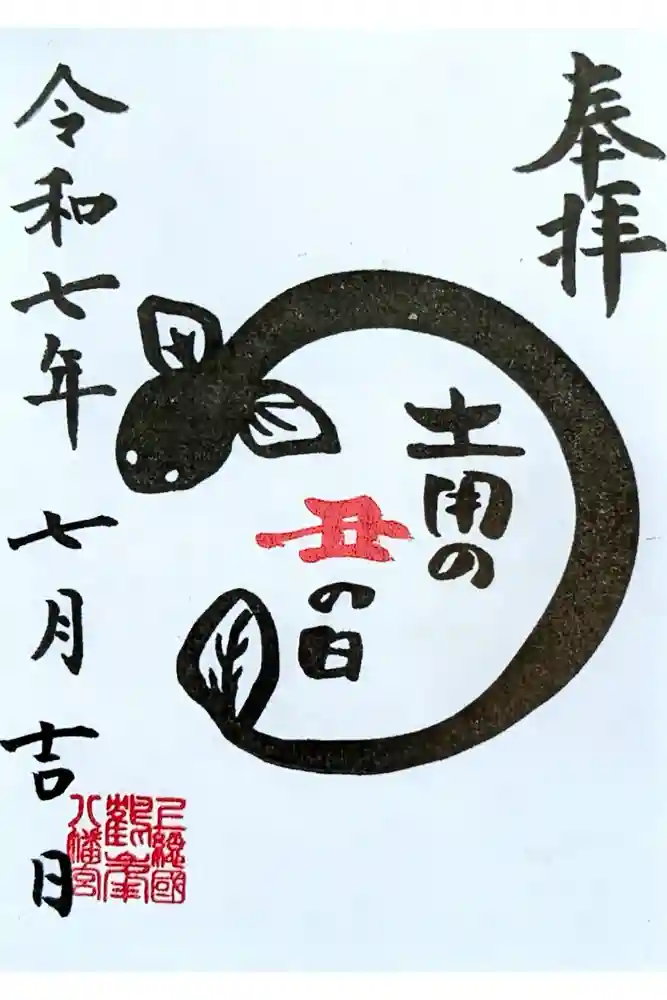 奉拝
土用の
丑の日
令和七年 七月吉日
上総國
鶴峯
八幡宮